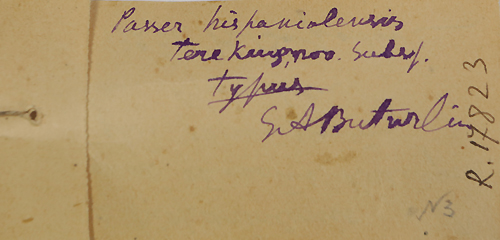 Passer hispaniolensis
Terekini, nov. subsp.
typus
S A Buturlin
R. 17823
N3